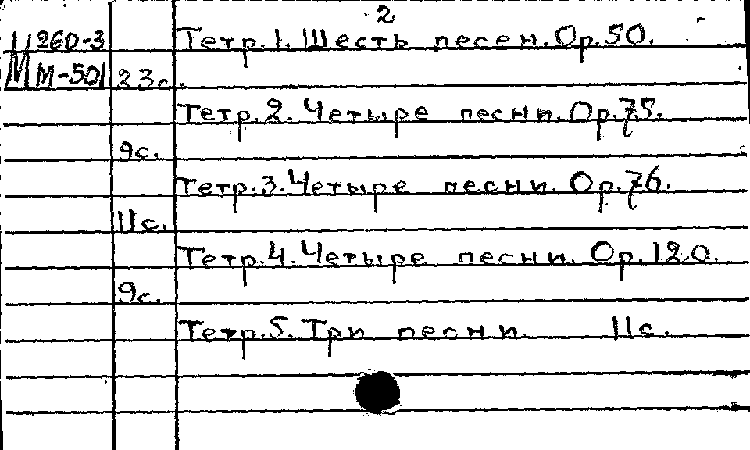 2
Ц 260-3 Тетр.1. Шесть песен. Ор.50.
М М-501 23с.
Тетр.2. Четыре песни. Ор.75.
9с.
Тетр.3. Четыре песни. Ор.76.
11с.
Тетр.4. Четыре песни. Ор.120.
9с.
Тетр.5. Три песни. 11с.